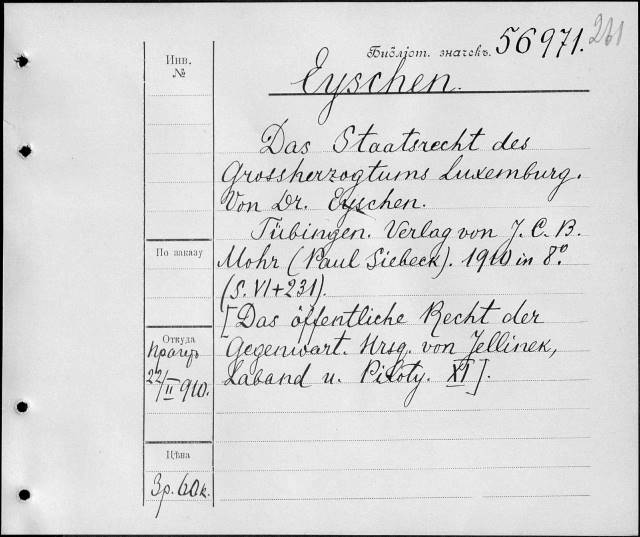 261
Библіот. значекъ. 56971.
Инв.
№
Eyschen.
Das Staatsrecht des
Grossherzogtums Luxemburg.
Von Dr. Eyschen.
Tübingen. Verlag von J. C. B.
По заказу
Mohr (Paul Siebeck). 1910 in 8°.
(S. VI+231).
[Das öffentliche Recht der
Откуда
Gegenwart. Hrsg. von Jellinek,
Прагеръ
Laband u. Piloty. XI].
22/II 910.
Цѣна
3р. 60к.